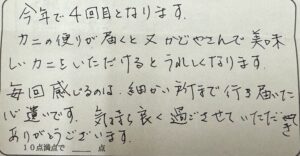 今年で4回目となります。
カニの便りが届くと又かどやさんで美味
しいカニをいただけるとうれしくなります。
毎回感じるのは、細かい所まで行き届いた
心遣いです。気持ち良く過ごさせていただき
ありがとうございます。
10点満点で 点